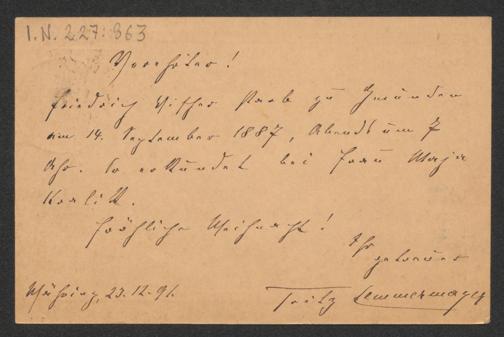 I.N. 227.863
Verehrter!
Friedrich Vischer starb zu Gmunden
am 14. September 1887, Abends um 7
Uhr. So erkundet bei Frau Maja
Karlitt.
Fröhliche Weihnacht!
Ihr
getreuer
Währing, 23.12.91. Fritz Lemmermayer